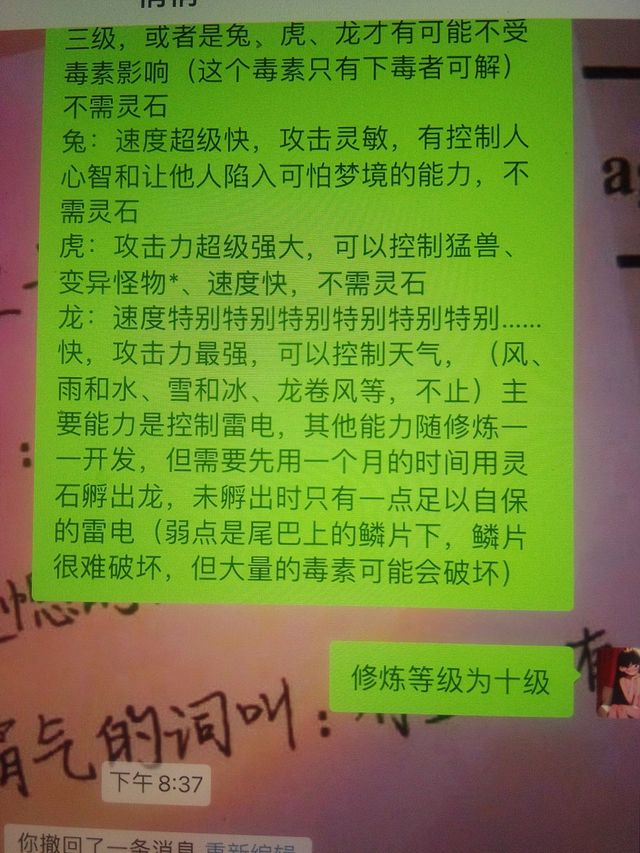 三级，或者是兔、虎、龙才有可能不受
毒素影响（这个毒素只有下毒者可解）
不需灵石
兔：速度超级快，攻击灵敏，有控制人
心智和让他人陷入可怕梦境的能力，不
需灵石
虎：攻击力超级强大，可以控制猛兽、
变异怪物*、速度快，不需灵石
龙：速度特别特别特别特别特别特别......
快，攻击力最强，可以控制天气，（风、
雨和水、雪和冰、龙卷风等，不止）主
要能力是控制雷电，其他能力随修炼一
一开发，但需要先用一个月的时间用灵
石孵出龙，未孵出时只有一点足以自保
的雷电（弱点是尾巴上的鳞片下，鳞片
很难破坏，但大量的毒素可能会破坏）
有
修炼等级为十级
气的词叫：
下午 8:37
你撤回了一条消息 重新编辑